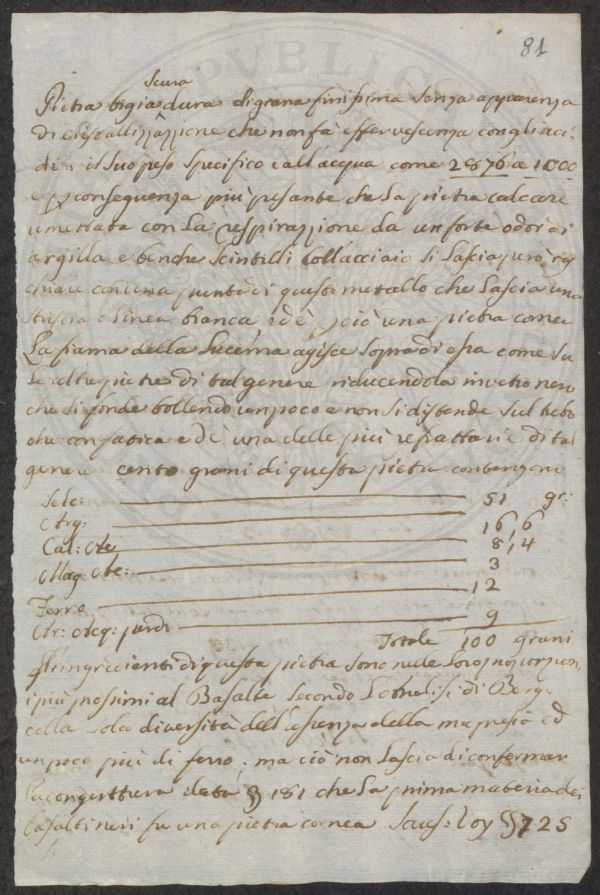 81
scura
Pietra bigia dura di grana finissima senza apparenza
di cristallizzazione che non fa effervescenza con gli aci-
di: il suo peso specifico è all'acqua come 2876 a 1000
e p conseguenza più pesante che la pietra calcare
umettata con la respirazione da un forte odor di
argilla e benche scintilli coll'acciaio si lascia però rig
chiare con una punta di questo metallo che lascia una
striscia o linea bianca ed è p ciò una pietra cornea
La fiama della lucerna agisce sopra di essa come su
le altre pietre di tal genere riducendola in vetro nero
che si fonde bollendo un poco e non si distende sul tubo
che con fatica ed è una delle più refrattarie di tal
genere cento grani di questa pietra contengono
Selc: 51 gr:
Arg: 16,6
Cal: Ae, 8,4
Mag: Ae: 3
Ferro 12
Ar: Acq: perd: 9
Totale 100 grani
Gl'ingredienti di questa pietra sono nelle loro proporzioni
i più prossimi al Basalte secondo L'analisi di Berg:
colla sola diversità dell'essenza della magnesia ed
un poco più di ferro; ma ciò non lascia di confermar
la congettura data § 181 che la prima materia dei
basalti neri fu una pietra cornea Saus: Voy § 725